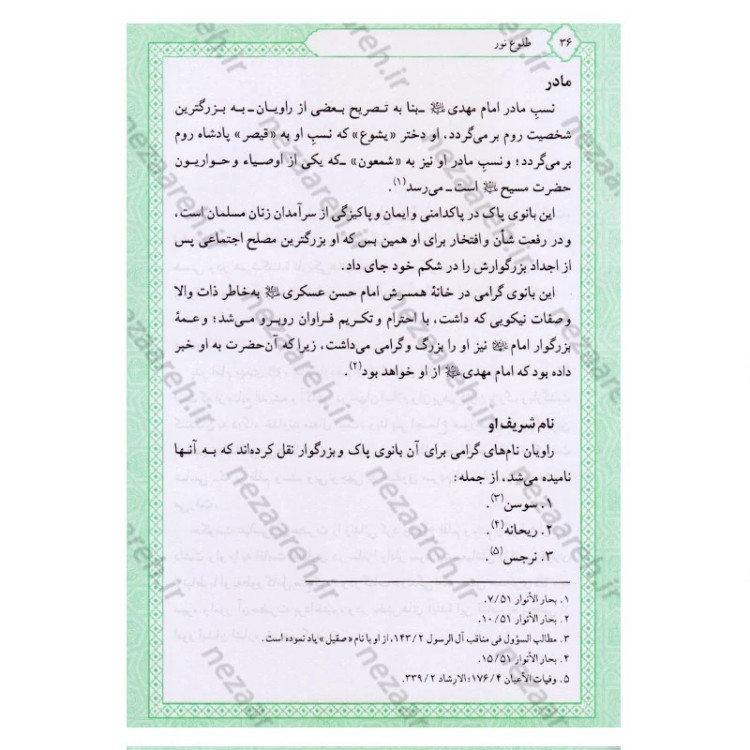 ۳۶
طلوع نور
مادر
نسبِ مادر امام مهدی ـبنا به تصریح بعضی از راویان ـ به بزرگترین
شخصیت روم بر می‌گردد، او دختر «یشوع» که نسبِ او به «قیصر» پادشاه روم
بر می‌گردد؛ و نسبِ مادر او نیز به «شمعون» ـکه یکی از اوصیاء و حواریون
حضرت مسیح است ـ می‌رسد(۱).
این بانوی پاک در پاکدامنی و ایمان و پاکیزگی از سرآمدان زنان مسلمان است،
و در رفعت شأن و افتخار برای او همین بس که او بزرگترین مصلح اجتماعی پس
از اجداد بزرگوارش را در شکم خود جای داد.
این بانوی گرامی در خانهٔ همسرش امام حسن عسکری به‌خاطر ذات والا
و صفات نیکویی که داشت، با احترام و تکریم فراوان روبرو می‌شد؛ و عمهٔ
بزرگوار امام نیز او را بزرگ و گرامی می‌داشت، زیرا که آن‌حضرت به او خبر
داده بود که امام مهدی از او خواهد بود(۲).
نام شریف او
راویان نام‌های گرامی برای آن بانوی پاک و بزرگوار نقل کرده‌اند که به آنها
نامیده می‌شد، از جمله:
۱. سوسن(۳).
۲. ریحانه(۴).
۳. نرجس(۵).
۱. بحار الأنوار ۷/۵۱.
۲. بحار الأنوار ۱۰/۵۱.
۳. مطالب السؤول فی مناقب آل الرسول ۱۴۳/۲، از او با نام «صقیل» یاد نموده است.
۴. بحار الأنوار ۱۵/۵۱.
۵. وفیات الأعیان ۱۷۶/۴؛ الارشاد ۳۳۹/۲.
nezaareh.ir